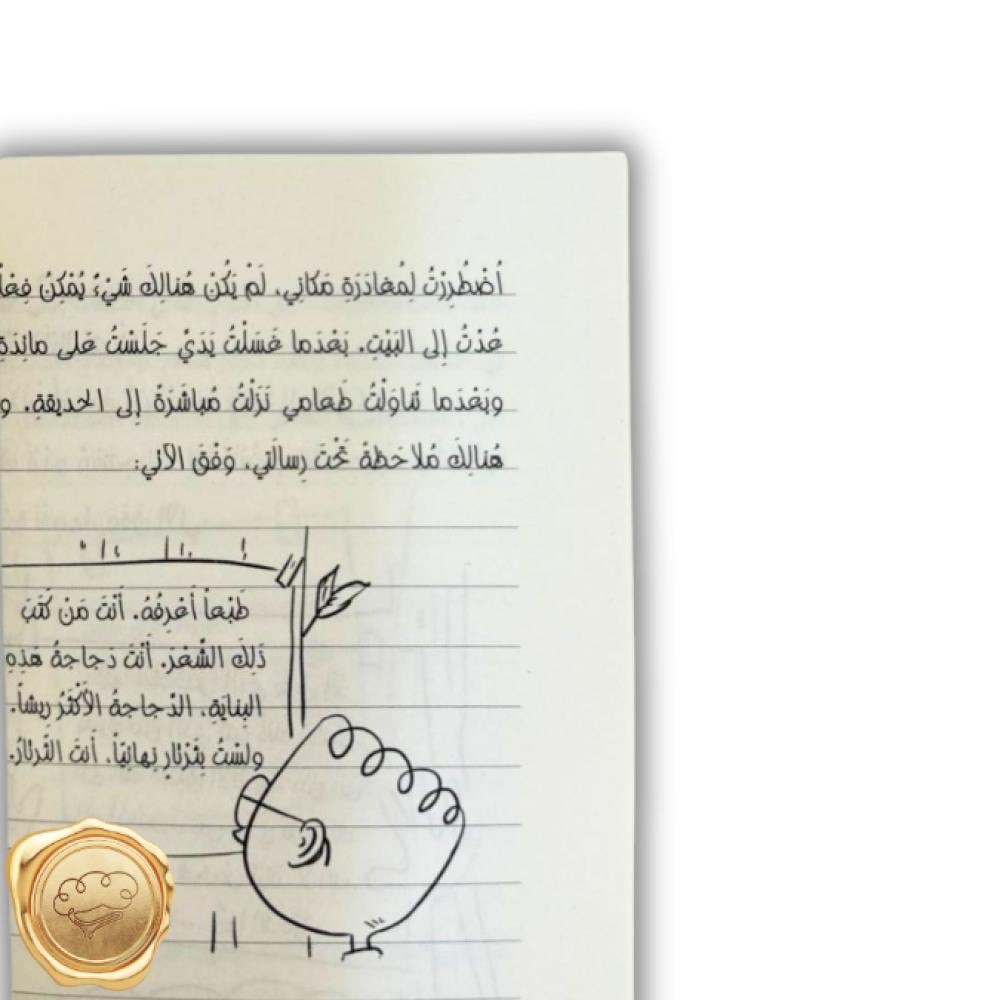 اُضْطُرِرْتُ لِمُغادَرَةِ مَكاني. لَمْ يَكُنْ هُنالِكَ شَيْءٌ يُمْكِنُ
عُدْتُ إِلى البَيْتِ. بَعْدَما غَسَلْتُ يَدَيَّ جَلَسْتُ عَلى مائِدَةِ
وبَعْدَما تَناوَلْتُ طَعامي نَزَلْتُ مُباشَرَةً إِلى الحديقةِ.
هُنالِكَ مُلاحَظةٌ تَحْتَ رِسالَتي. وَفْقَ الآتي:
طَبْعاً أَعْرِفُهُ. أَنْتَ مَنْ كَتَبَ
ذَلِكَ الشِّعْرَ. أَنْتَ دَجاجةُ هَذِهِ
البِنايَةِ. الدَّجاجةُ الأَكْثَرُ رِيشاً.
ولَسْتُ بِثَرْثارٍ نِهائِيّاً. أَنتَ الثَّرثارُ.